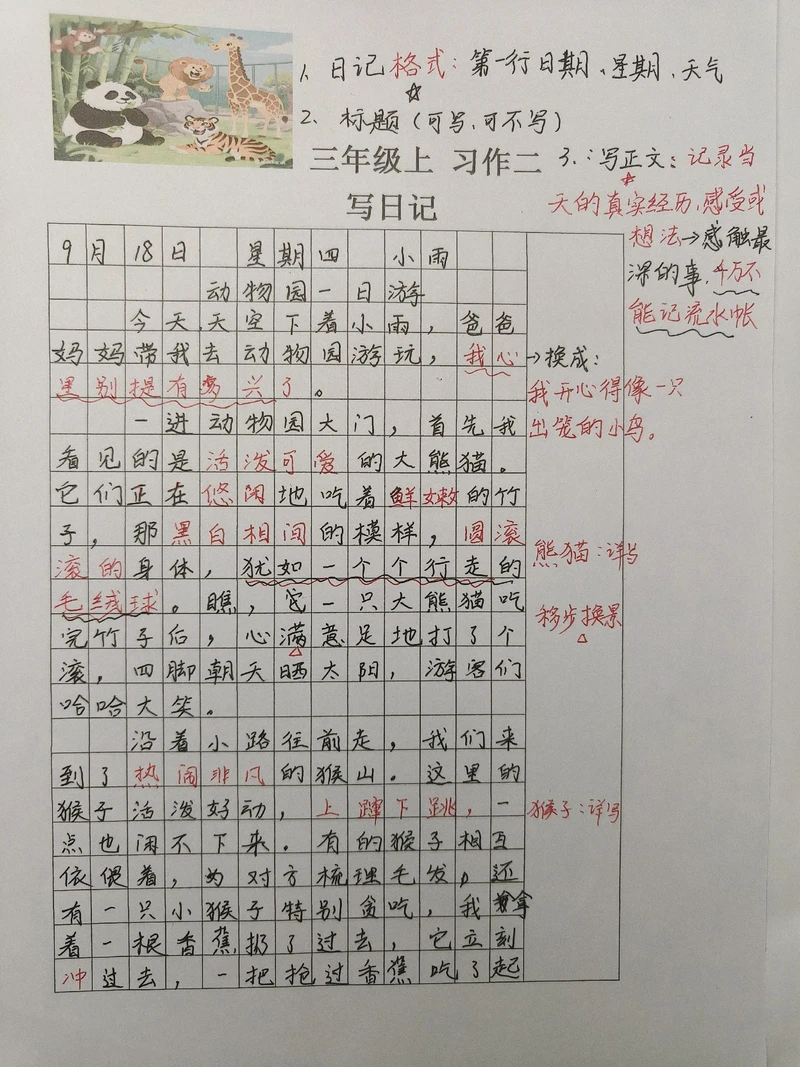 1、日记格式：第一行日期、星期、天气
☆
2、标题（可写、可不写）
三年级上 习作二
3、：写正文：记录当
☆
写日记
天的真实经历、感受或
想法→感触最
深的事，千万不
能记流水帐
9月18日 星期四 小雨
动物园一日游
今天，天空下着小雨，爸爸
妈妈带我去动物园游玩，我心
→换成：
里别提有多兴了。
我开心得像一只
一进动物园大门，首先我
出笼的小鸟。
看见的是活泼可爱的大熊猫。
它们正在悠闲地吃着鲜嫩的竹
子，那黑白相间的模样，圆滚
熊猫：详写
滚的身体，犹如一个个行走的
毛绒球。瞧，它一只大熊猫吃
移步换景
完竹子后，心满意足地打了个
滚，四脚朝天晒太阳，游客们
哈哈大笑。
沿着小路往前走，我们来
到了热闹非凡的猴山。这里的
猴子活泼好动，上蹿下跳，一
猴子：详写
点也闲不下来。有的猴子相互
依偎着，为对方梳理毛发，还
有一只小猴子特别贪吃，我拿
着一根香蕉扔了过去，它立刻
冲过去，一把抢过香蕉吃了起